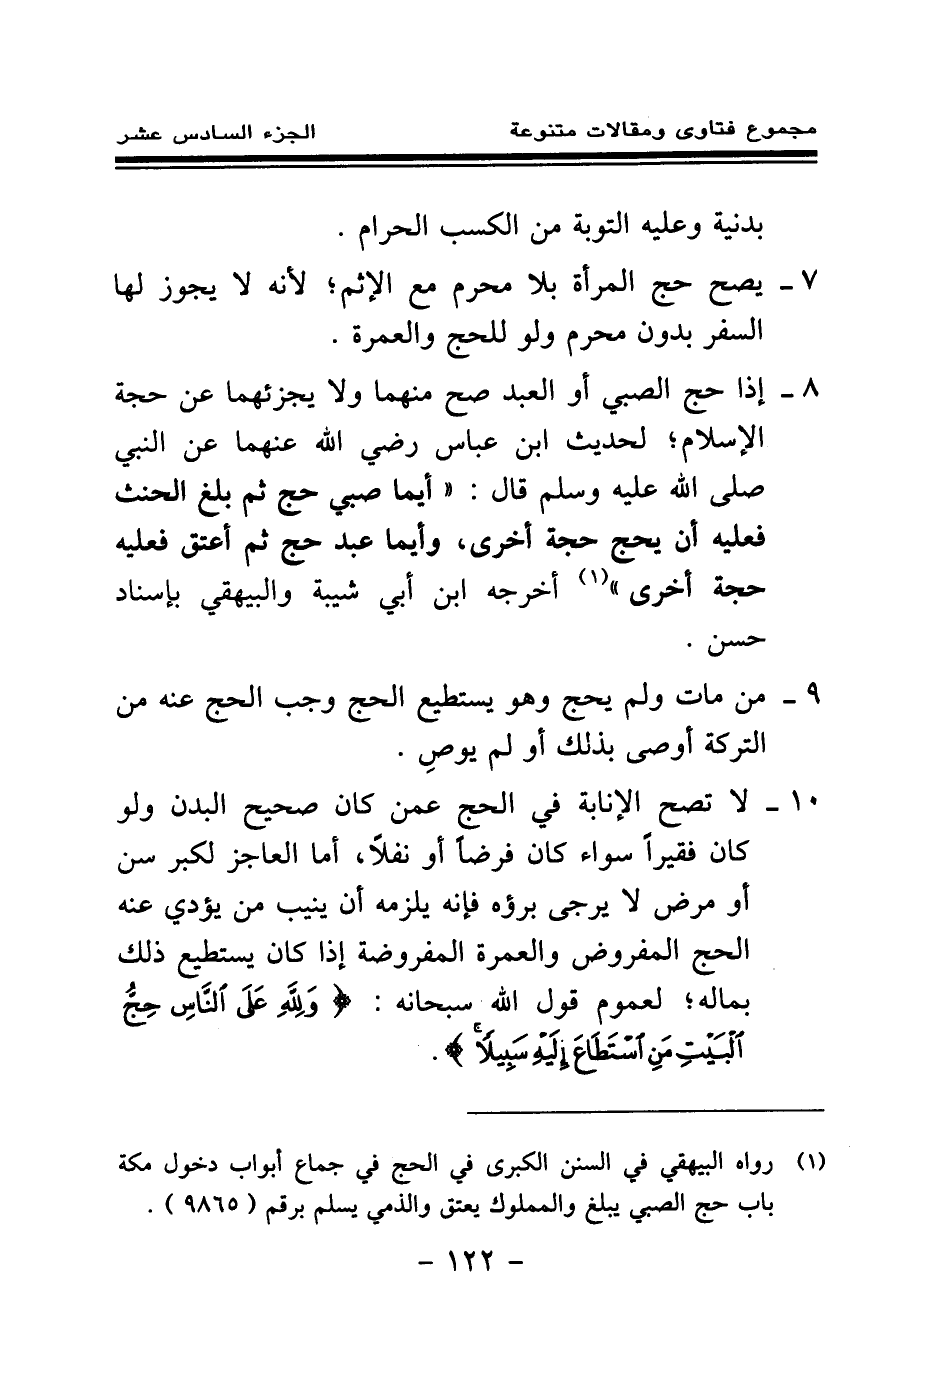 مجموع فتاوى ومقالات متنوعة الجزء السادس عشر
بدنية وعليه التوبة من الكسب الحرام .
٧ ـ يصح حج المرأة بلا محرم مع الإثم؛ لأنه لا يجوز لها
السفر بدون محرم ولو للحج والعمرة .
٨ ـ إذا حج الصبي أو العبد صح منهما ولا يجزئهما عن حجة
الإسلام؛ لحديث ابن عباس رضي الله عنهما عن النبي
صلى الله عليه وسلم قال : « أيما صبي حج ثم بلغ الحنث
فعليه أن يحج حجة أخرى، وأيما عبد حج ثم أعتق فعليه
حجة أخرى »(١) أخرجه ابن أبي شيبة والبيهقي بإسناد
حسن .
٩ ـ من مات ولم يحج وهو يستطيع الحج وجب الحج عنه من
التركة أوصى بذلك أو لم يوصِ .
١٠ ـ لا تصح الإنابة في الحج عمن كان صحيح البدن ولو
كان فقيراً سواء كان فرضاً أو نفلاً، أما العاجز لكبر سن
أو مرض لا يرجى برؤه فإنه يلزمه أن ينيب من يؤدي عنه
الحج المفروض والعمرة المفروضة إذا كان يستطيع ذلك
بماله؛ لعموم قول الله سبحانه : ﴿ وَلِلَّهِ عَلَى ٱلنَّاسِ حِجُّ
ٱلْبَيْتِ مَنِ ٱسْتَطَاعَ إِلَيْهِ سَبِيلًاۚ ﴾ .
(١) رواه البيهقي في السنن الكبرى في الحج في جماع أبواب دخول مكة
باب حج الصبي يبلغ والمملوك يعتق والذمي يسلم برقم ( ٩٨٦٥ ) .
- ١٢٢ -